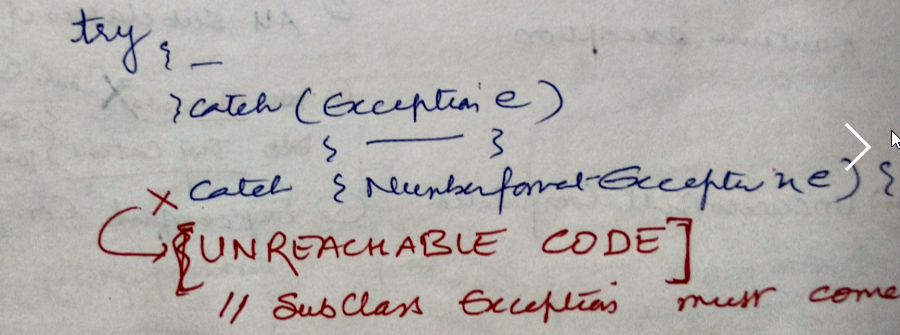 try { —
} catch (Exception e)
{ —— }
x catch { Numberformat-Exception e) {
[UNREACHABLE CODE]
// SubClass Exception must come